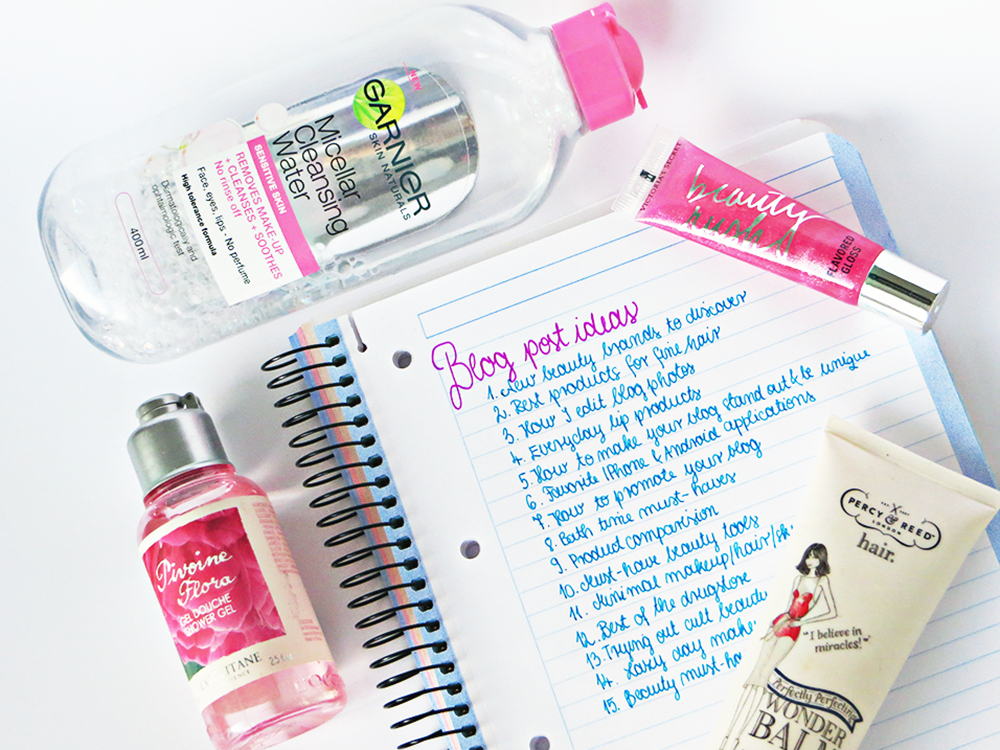 NEW
GARNIER
SKIN NATURALS
Micellar
Cleansing
Water
SENSITIVE SKIN
REMOVES MAKE-UP
+ CLEANSES + SOOTHES
No rinse off
Face, eyes, lips - No perfume
High tolerance formula
Dermatologically and
ophtalmologic test
400ml
VICTORIA'S SECRET
beauty
rush
FLAVORED
GLOSS
Blog post ideas
1. New beauty brands to discover
2. Best products for fine hair
3. How I edit blog photos
4. Everyday lip products
5. How to make your blog stand out & be unique
6. Favorite iPhone & Android applications
7. How to promote your blog
8. Bath time must-haves
9. Product comparision
10. Must-have beauty tools
11. Minimal makeup/hair/sk
12. Best of the drugstore
13. Trying out cult beaut
14. Lazy day make
15. Beauty must-ha
Pivoine
Flora
GEL DOUCHE
SHOWER GEL
ITANE
PERCY & REED
LONDON
hair.
"I believe in
miracles!"
Perfectly Perfecting
WONDER
BAL